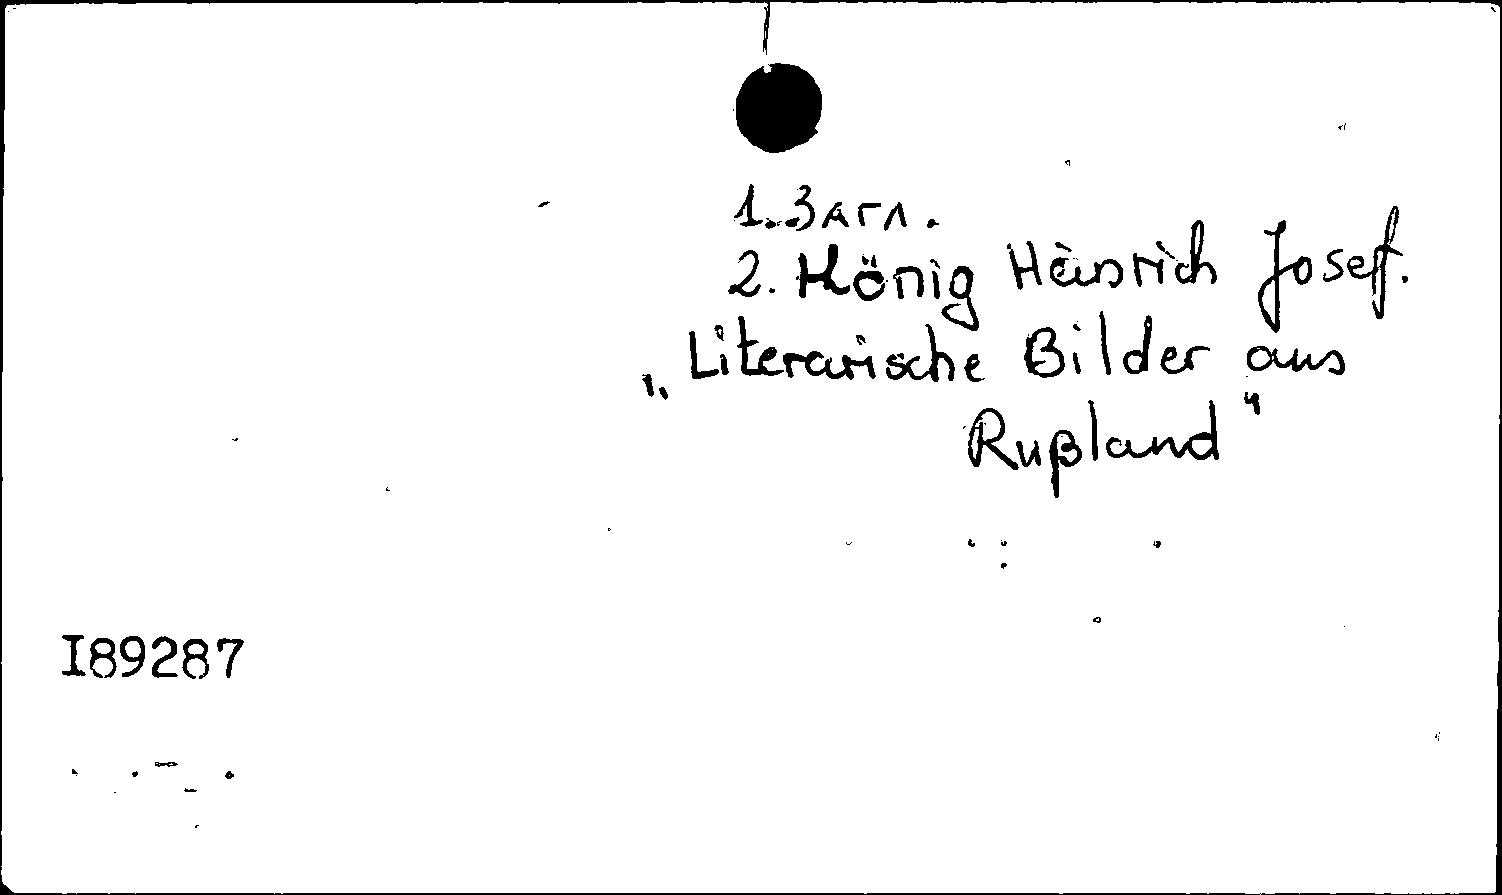 1. Загл.
2. König Heinrich Josef.
„Literarische Bilder aus
Rußland"
I89287